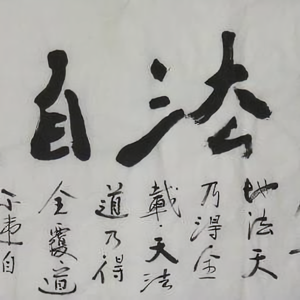 法自
地法天
乃得全
載天法
道乃得
全覆道
不違自